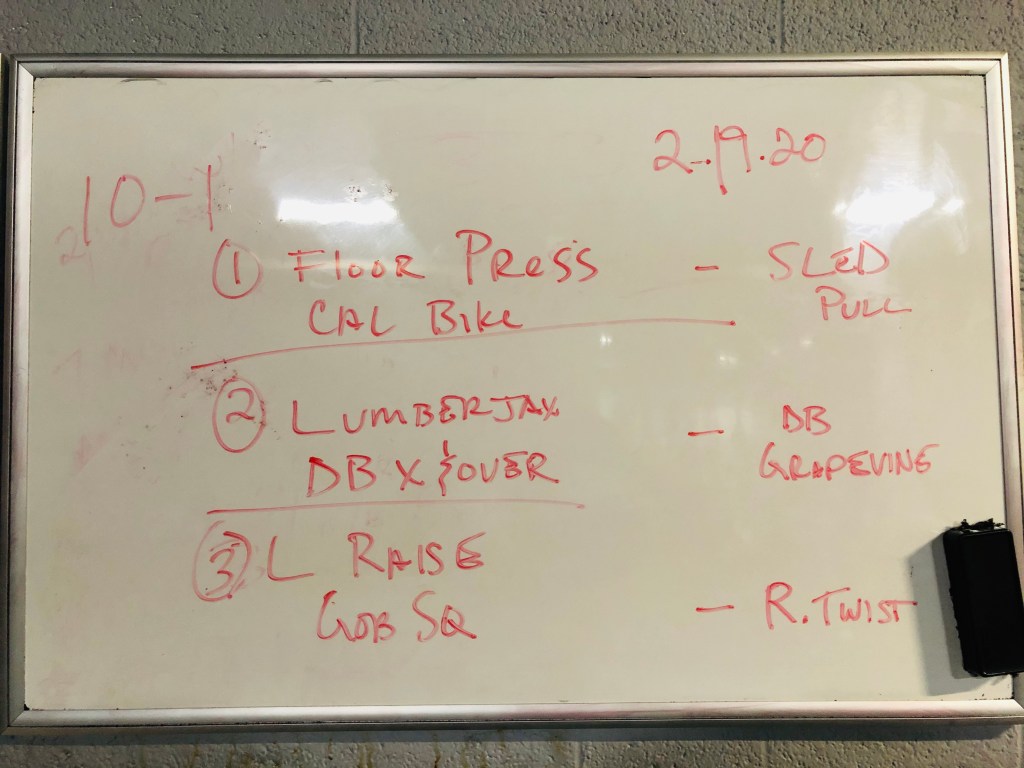 2.19.20
10-1
① FLOOR PRESS - SLED
CAL BIKE PULL
② LUMBERJAX - DB
DB X & OVER GRAPEVINE
③ L RAISE
GOB SQ - R. TWIST